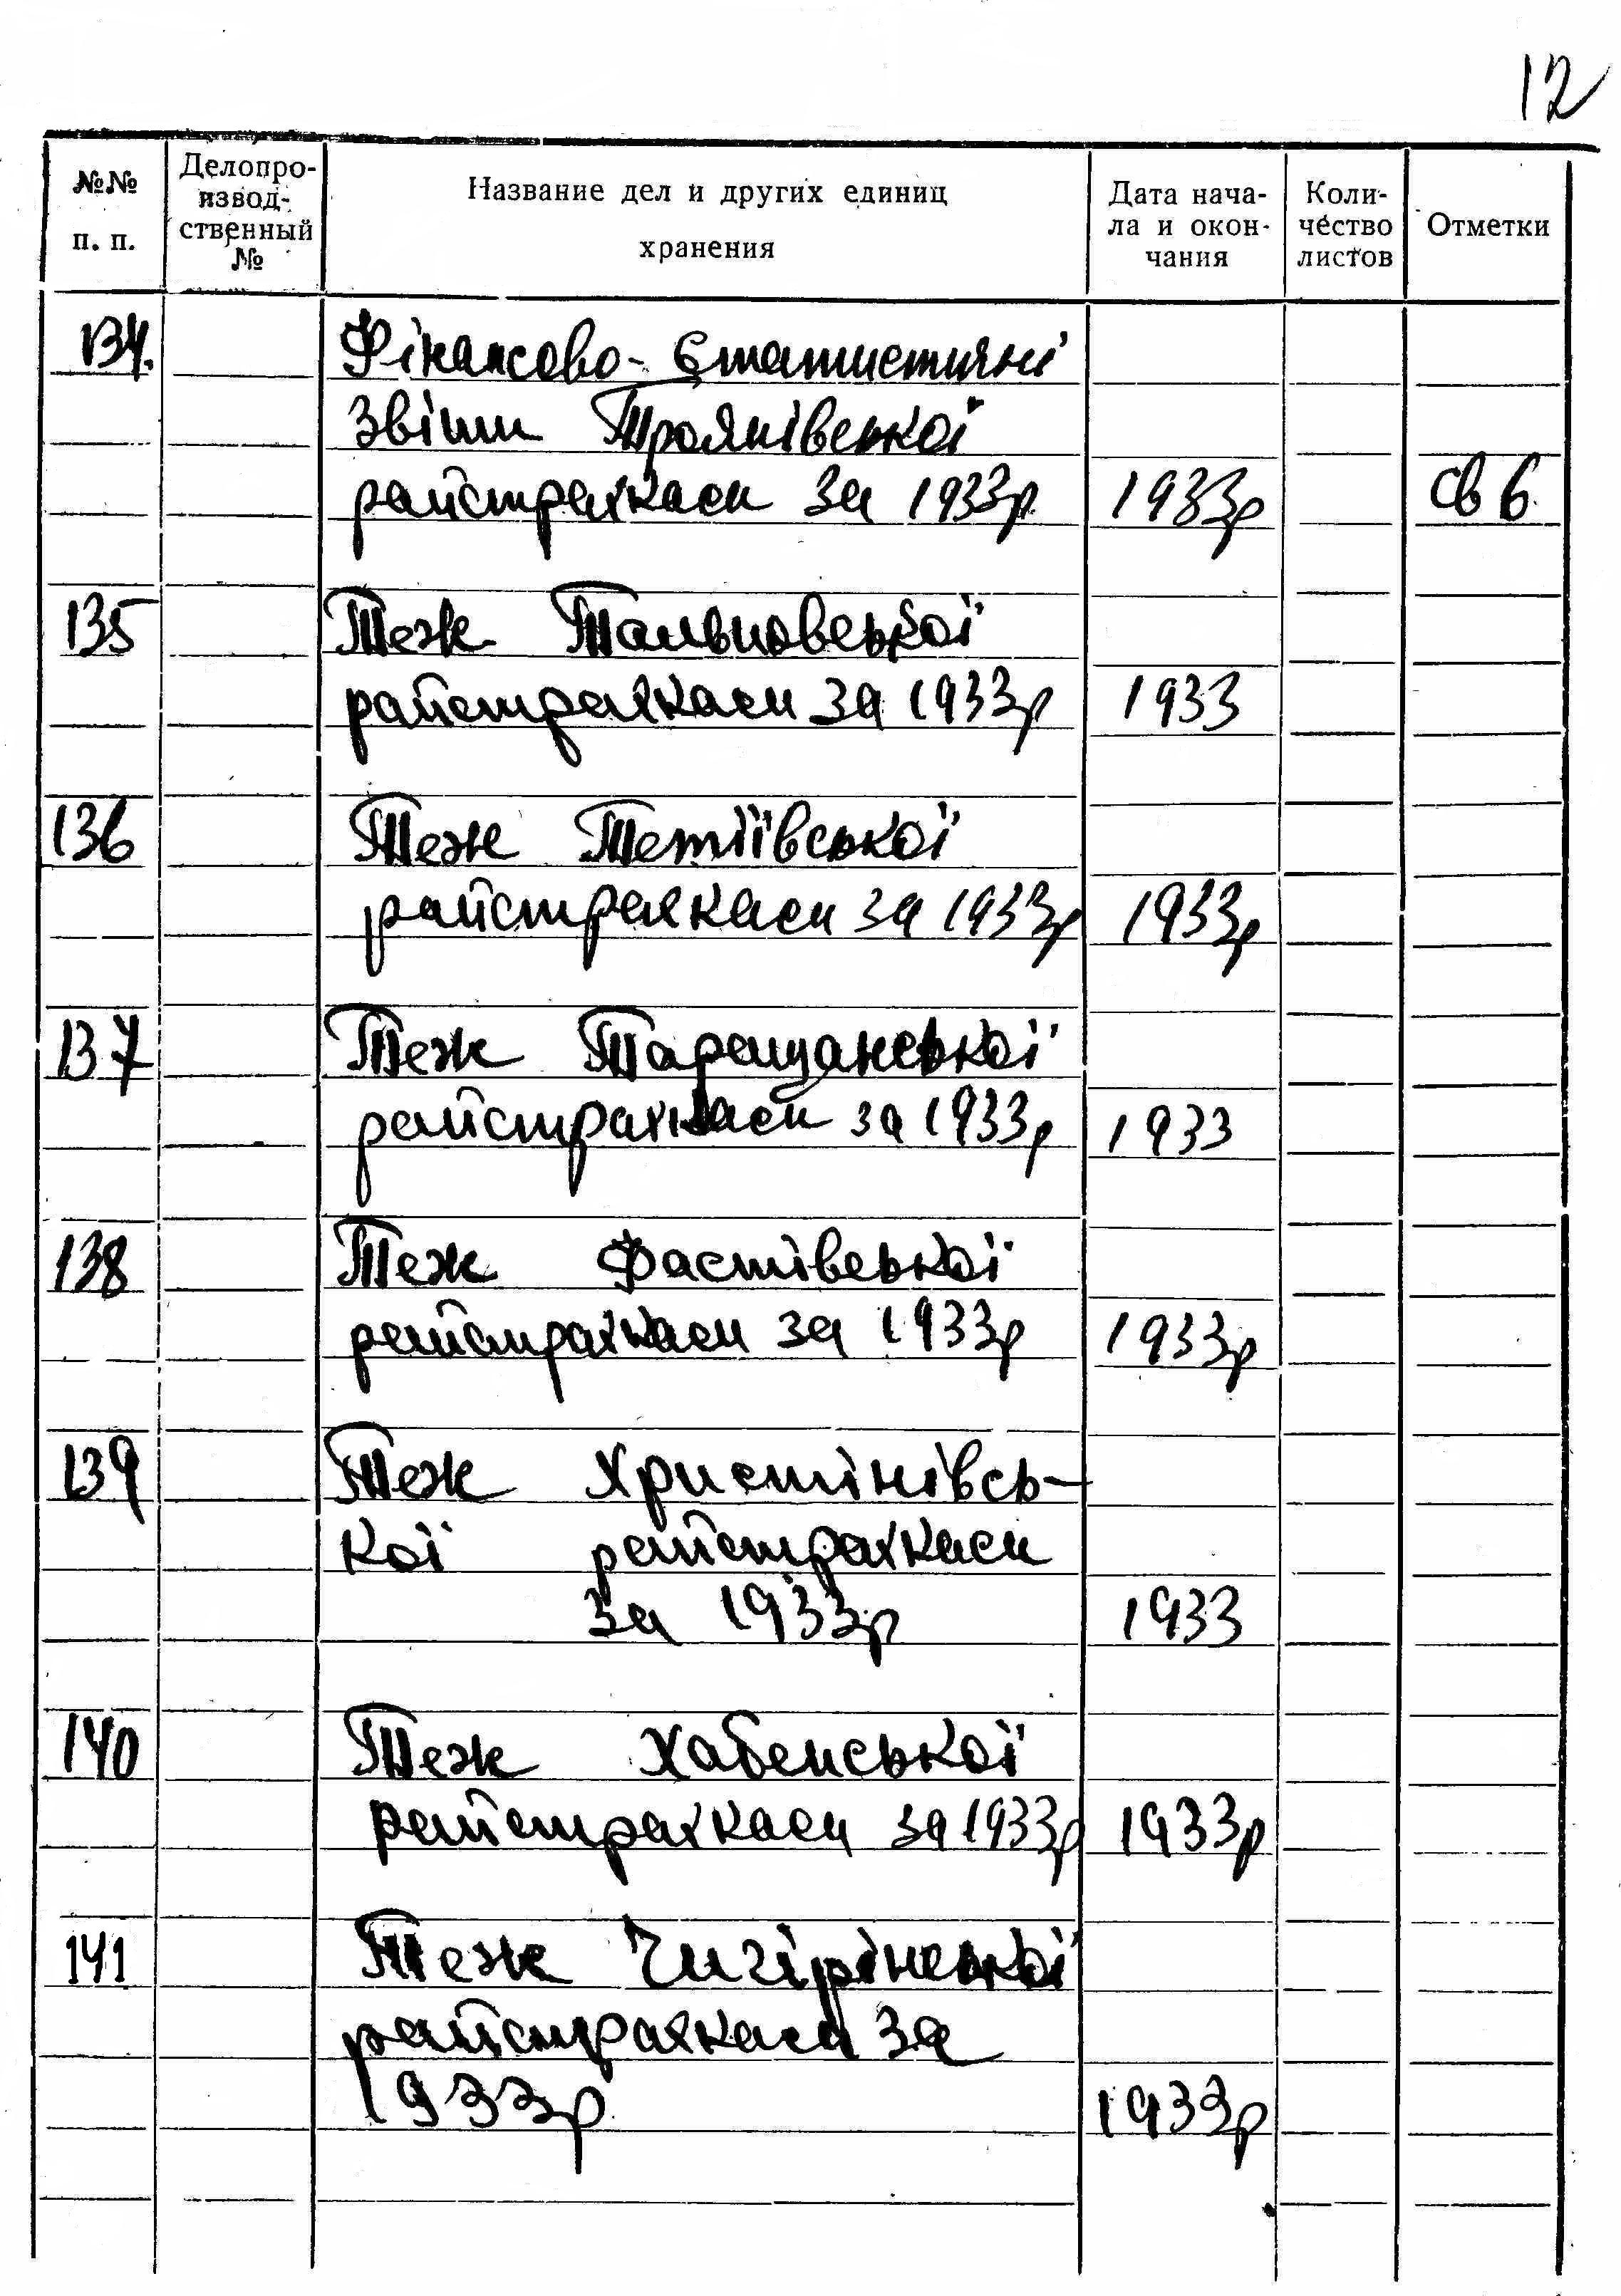 12
№№ п. п.
Делопро-
извод-
ственный
№
Название дел и других единиц
хранения
Дата нача-
ла и окон-
чания
Коли-
чество
листов
Отметки
134. Фінансово-Статистичні
звіти Троянівської
райстрахкаси за 1933р 1933р св 6.
135 Теж Тальновської
райстрахкаси за 1933р 1933
136 Теж Тетіївської
райстрахкаси за 1933р 1933р
137 Теж Таращанської
райстрахкаси за 1933р 1933
138 Теж Фастівської
райстрахкаси за 1933р 1933р
139 Теж Христінівсь-
кої райстрахкаси
за 1933р 1933
140 Теж Хабенської
райстрахкаси за 1933р 1933р
141 Теж Чигірінської
райстрахкаси за
1933р 1933р